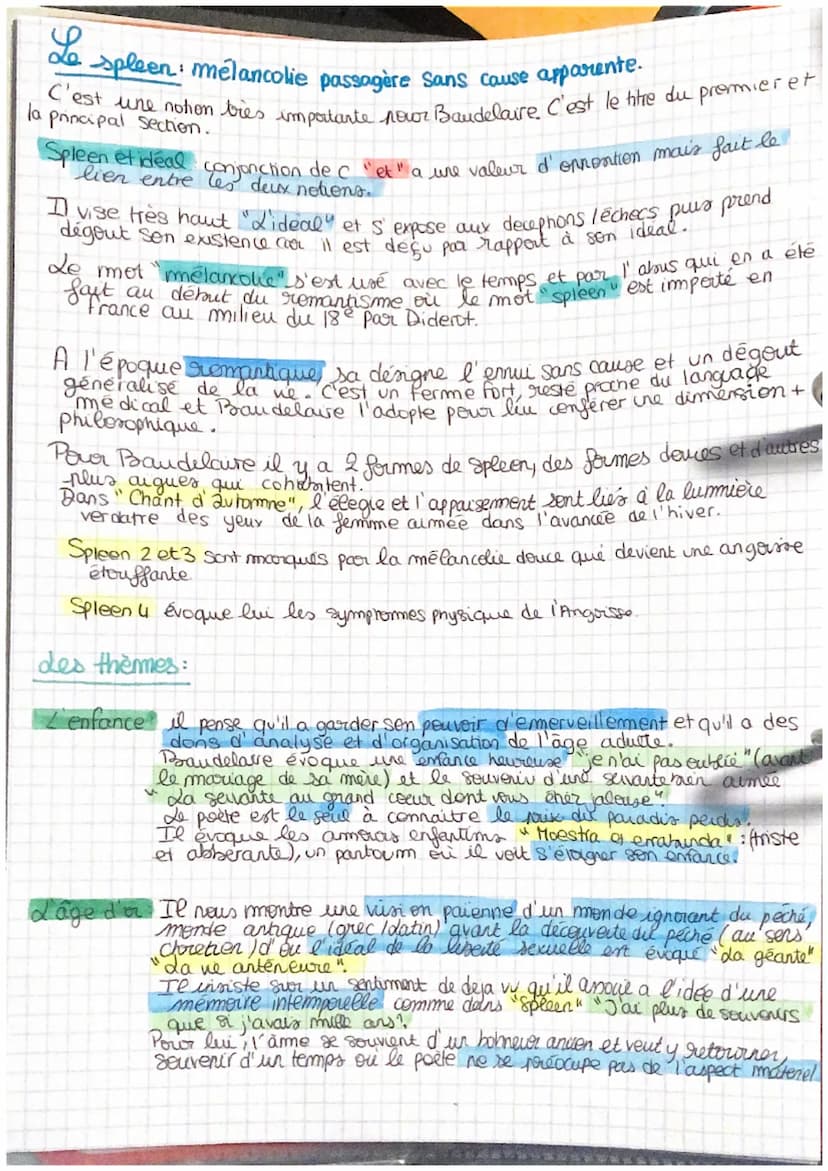 Le spleen : mélancolie passagère sans cause apparente.
C'est une notion très importante pour Baudelaire. C'est le titre du premier et
la principal section.
Spleen et idéal conjonction de C "et" a une valeur d'opposition mais fait le
lien entre les deux notions.
Il vise très haut "L'idéal" et s'expose aux deceptions/échecs puis prend
dégout son existence car il est deçu par rapport à son idéal.
Le mot "mélancolie" s'est usé avec le temps et par l'abus qui en a été
fait au début du romantisme où le mot "spleen" est importé en
France au milieu du 18e par Diderot.
A l'époque romantique, sa désigne l'ennui sans cause et un dégout
généralisé de la vie. C'est un terme fort, resté proche du language
médical et Baudelaire l'adopte pour lui conférer une dimension +
philosophique.
Pour Baudelaire il y a 2 formes de spleen, des formes douces et d'autres
plus aigues qui cohabitent.
Dans "Chant d'automne", l'élégie et l'appaisement sont liés à la lummière
verdatre des yeux de la femme aimée dans l'avancée de l'hiver.
Spleen 2 et 3 sont marqués par la mélancolie douce qui devient une angoisse
étouffante
Spleen 4 évoque lui les symptomes physique de l'Angoisse.
Les thèmes :
L'enfance il pense qu'il a garder son pouvoir d'emerveillement et qu'il a des
dons d'analyse et d'organisation de l'âge adulte.
Baudelaire évoque une enfance heureuse "je n'ai pas oublié" (avant
le mariage de sa mère) et le souvenir d'une servante aimée
"La servante au grand coeur dont vous étiez jalouse".
Le poète est le seul à connaitre le prix du paradis perdus.
Il évoque les amours enfantins "Moestra et errabunda" : (triste
et abbérante), un pantoum où il voit s'éloigner son enfance.
L'âge d'or Il nous montre une vision païenne d'un monde ignorant du péché,
monde antique (grec/latin) avant la découverte du péché (au sens
chretien) d'où l'idéal de la liberté sexuelle est évoqué "La géante"
"La vie antérieure".
Il insiste sur un sentiment de deja vu qu'il associe a l'idée d'une
mémoire intemporelle comme dans "Spleen" "J'ai plus de souvenirs
que si j'avais mille ans".
Pour lui, l'âme se souvient d'un bonheur ancien et veut y retourner,
souvenir d'un temps où le poète ne se préocupe pas de l'aspect matériel